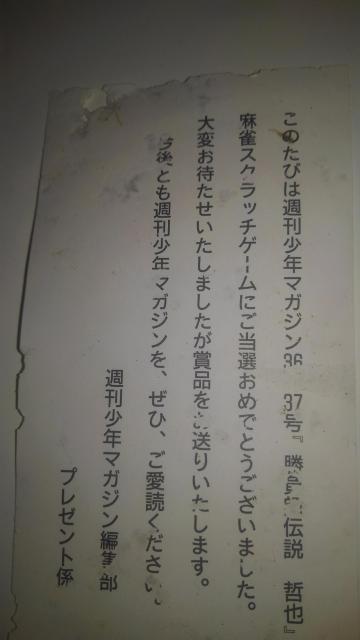 このたびは週刊少年マガジン36 37号『勝負師伝説 哲也』
麻雀スクラッチゲームにご当選おめでとうございました。
大変お待たせいたしましたが賞品をお送りいたします。
今後とも週刊少年マガジンを、ぜひ、ご愛読ください。
週刊少年マガジン編集部
プレゼント係